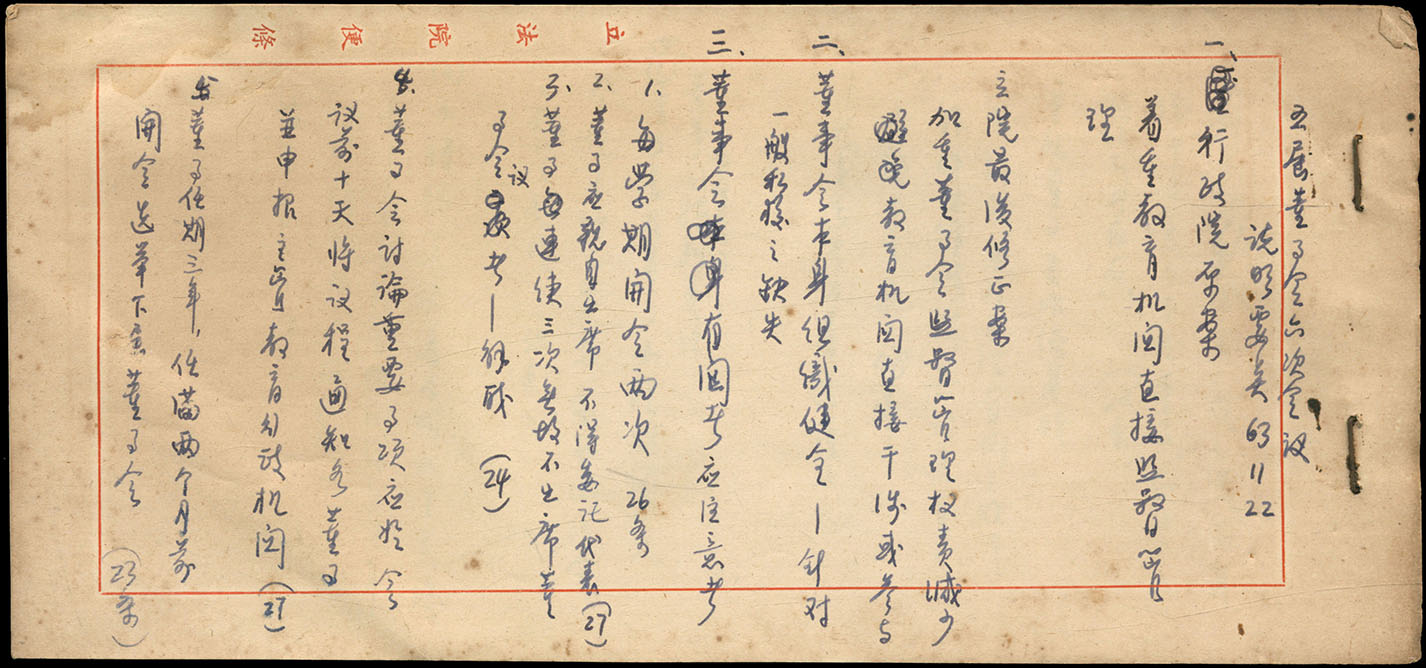 立法院便條
五屆董事会六次会议
說明要矣 63 11 22
一、行政院原案
着重教育机関直接監督管
理
立院最後修正案
加重董事会監督管理权責減少
避免教育机関直接干涉或參与
二、董事会本身組織健全—針对
一般私校之缺失
三、董事会本身有関者应注意者
1、每學期開会兩次 26条
2、董事应親自出席不得委託代表(27)
3、董事連續三次無故不出席董
事会议者—解職(24)
4、董事会討論重要事項应於会
议前十天将议程通知各董事
並申报主管教育行政机関(27)
5、董事任期三年,任滿兩个月前
開会选举下屆董事会(23条)